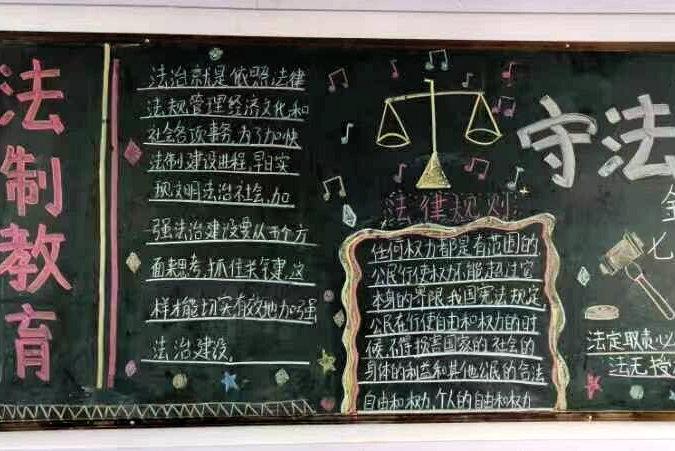 法制教育
法治就是依照法律
法规管理经济文化和
社会各项事务,为了加快
法制建设进程,早日实
现文明法治社会,加
强法治建设要从五个方
面来思考,抓住关键,这
样才能切实有效地加强
法治建设。
法律规则
任何权力都是有范围的
公民行使权力不能超过它
本身的界限,我国宪法规定,
公民在行使自由和权力的时
候,不得损害国家的社会的
身体的利益和其他公民的合法
自由和权力,个人的自由和权力
守法
金
七
法定职责必
法无授